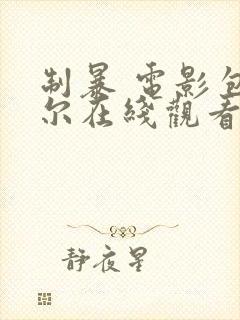 制暴 電影包
尔在綫觀看
静夜星